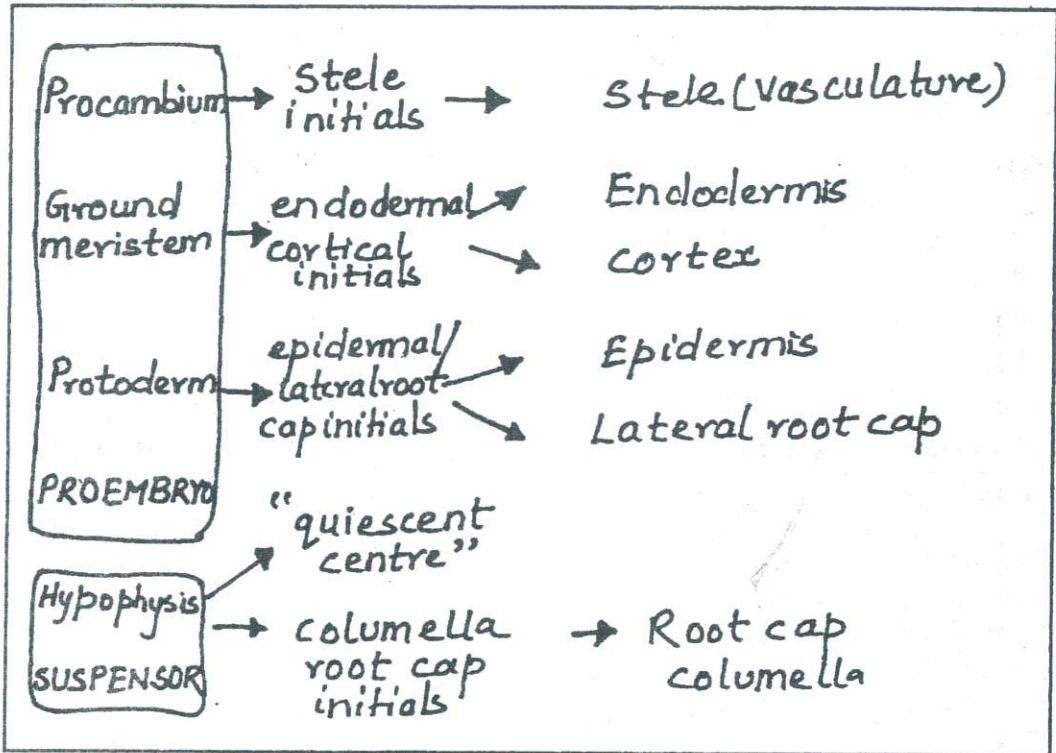 Procambium
Stele
initials
Stele (Vasculature)
Ground
meristem
endodermal
cortical
initials
Endodermis
cortex
Protoderm
epidermal/
lateral root
cap initials
Epidermis
Lateral root cap
PROEMBRYO
"quiescent
centre"
Hypophysis
SUSPENSOR
columella
root cap
initials
Root cap
columella